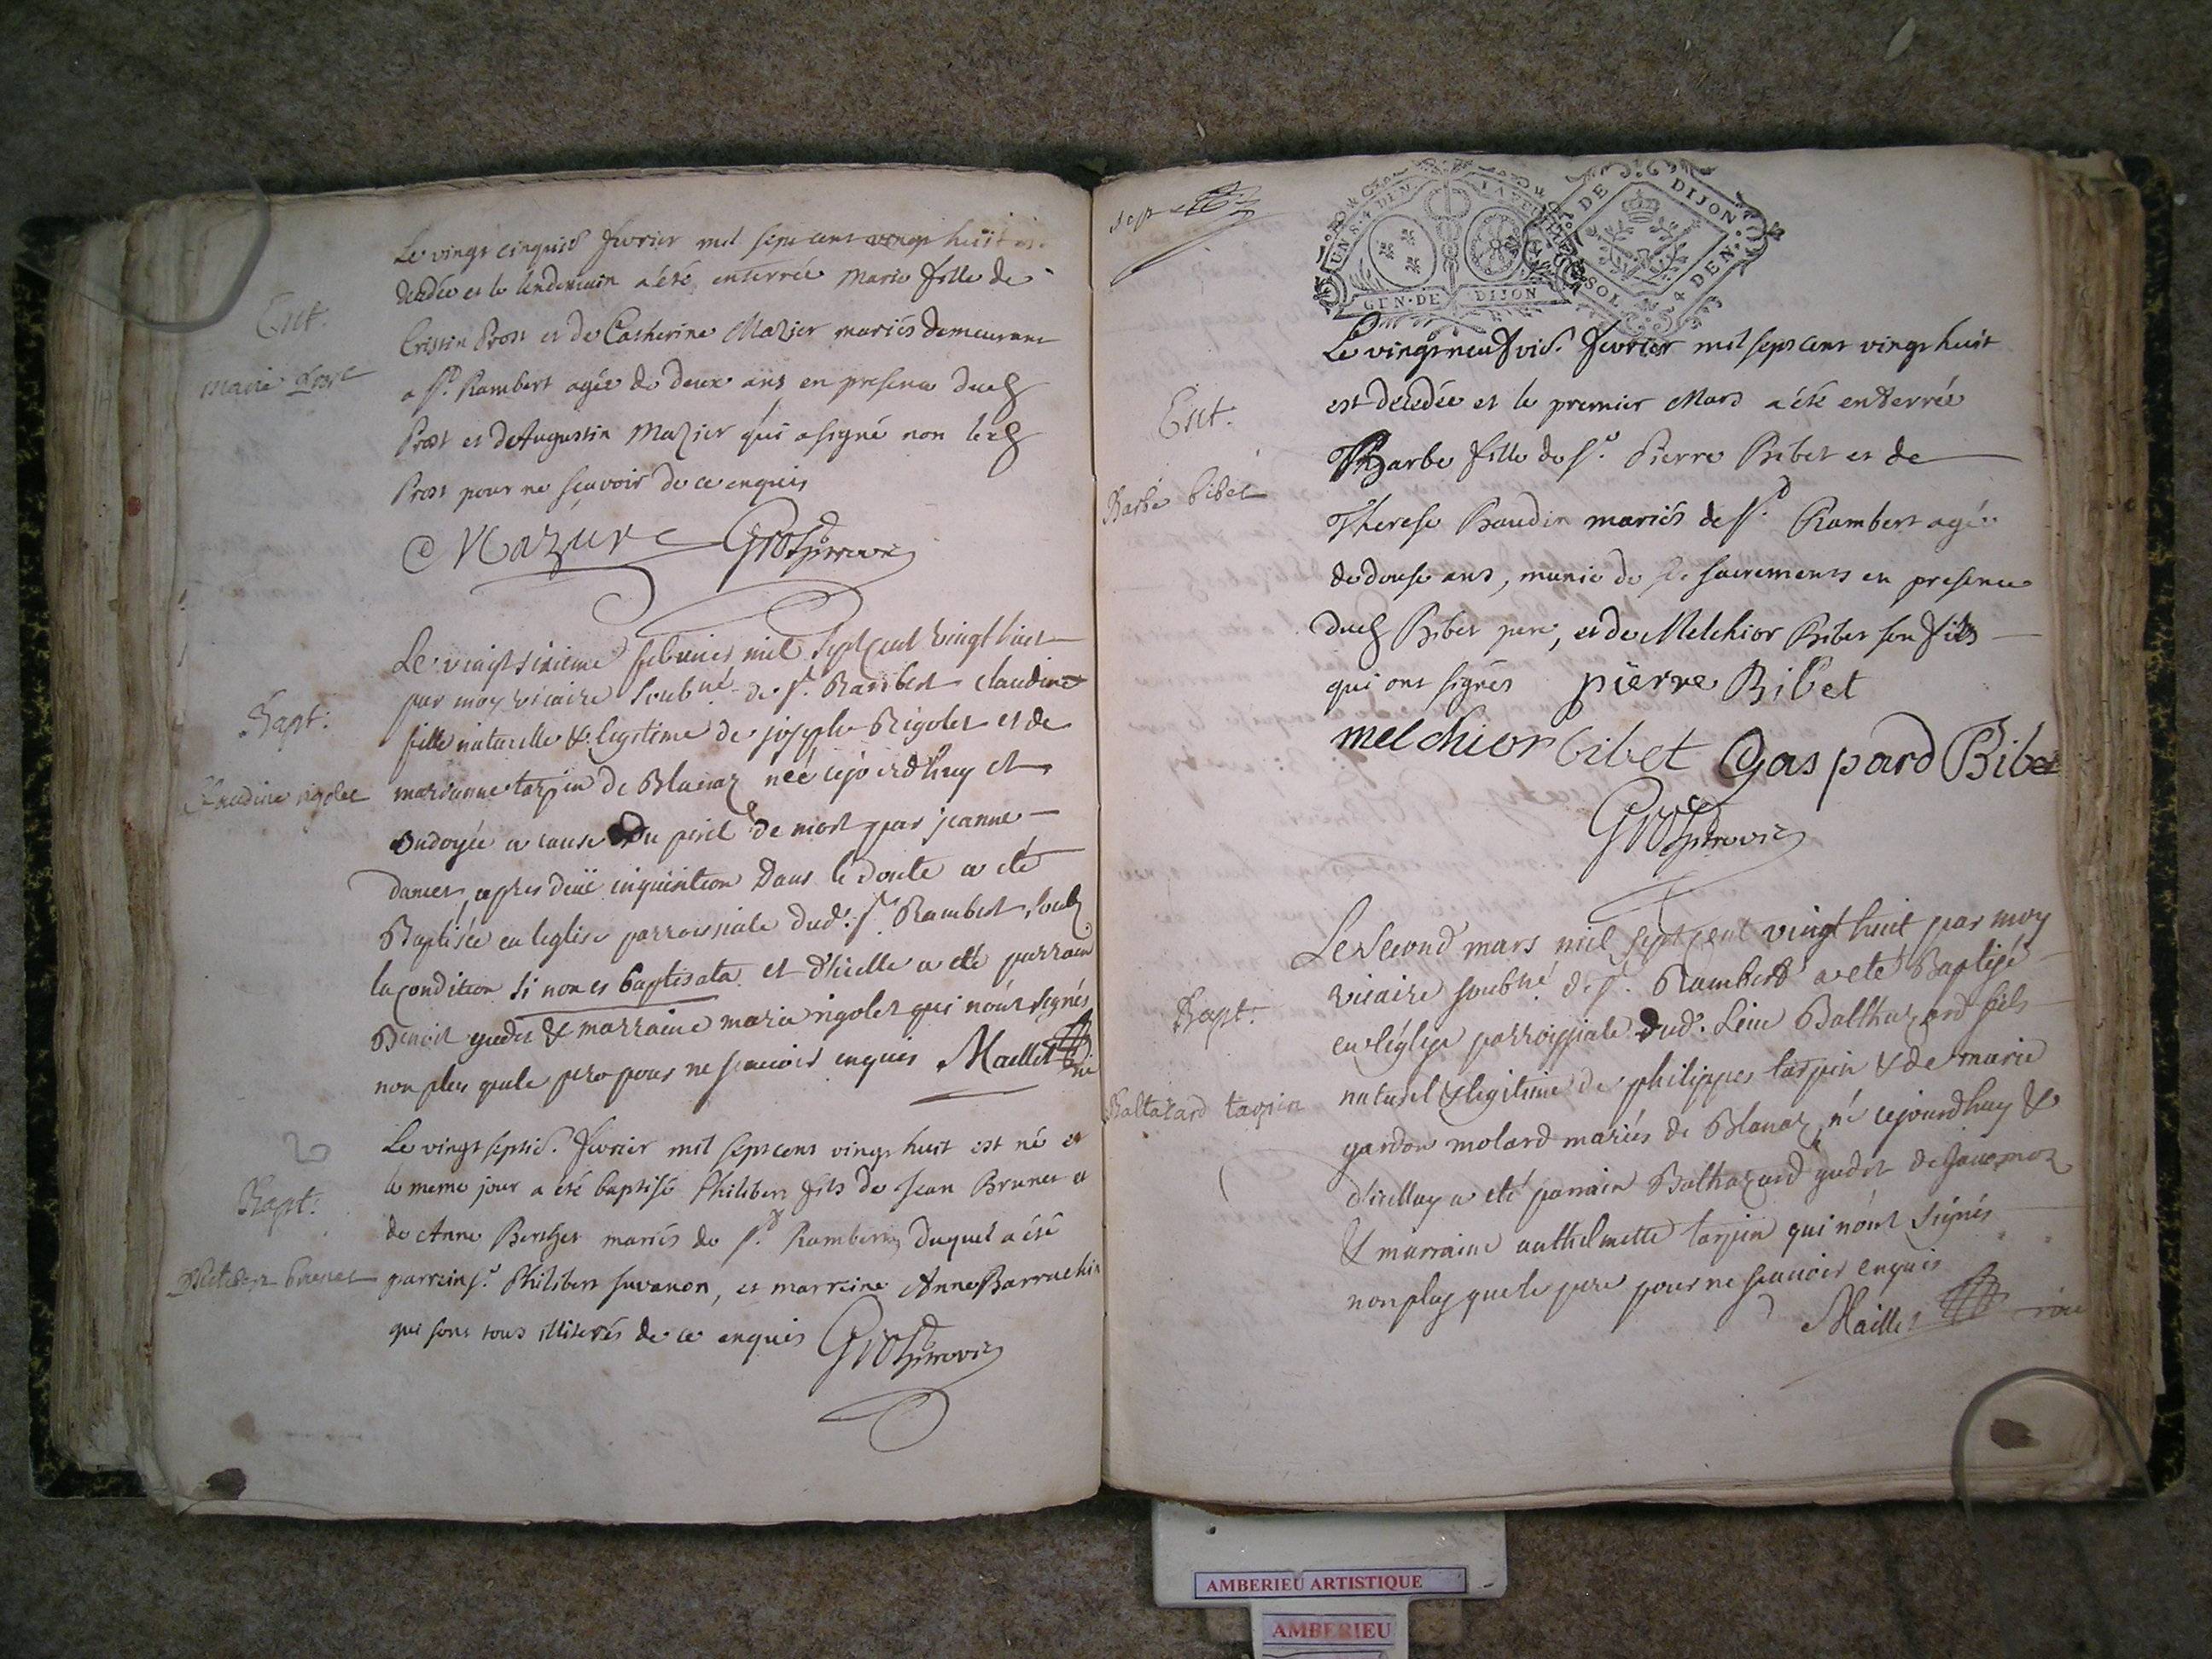 Le vingt cinquie. fevrier mil sept cent vingt huit est
decedée et le lendemain a été enterrée Marie fille de
Ent.
Cristin Prost et de Catherine Mazier mariés demeurant
Marie Prost
a St. Rambert agée de deux ans en presence dud
Prost et de Augustin Mazier qui a signé non led
Prost pour ne sçavoir de ce enquis
Mazure
Le vingt sixieme febvrier mil sept cent vingt huit
par moy vicaire soubné de St. Rambert claudine
Bapt.
fille naturelle & legitime de joseph Rigolet et de
Claudine rigolet
marianne tarpin de Blanaz née cejourdhuy et
ondoyée a cause du peril de mort par jeanne
dancer, apres deüe inquisition Dans le doute a été
Baptisée en leglise parroissiale dud. St. Rambert, soub
la condition si non es baptisata et d'icelle a été parrain
Benoit gudet & marraine marie rigolet qui n'ont signés
non plus que le pere pour ne scavoir enquis Maillet vic
Le vingt septie. fevrier mil sept cent vingt huit est né et
le meme jour a été baptisé Philibert fils de Jean Brunet et
Bapt.
de Anne Berthet mariés de St. Rambert, duquel a été
Philibert brunet
parrein sr. Philibert Juvanon, et marreine Anne
qui sont tous illiterés de ce enquis
UN S. 4 DEN.
GEN. DE DIJON
DE DIJON
SOL 4 DEN.
Le vingt neufvie. fevrier mil sept cent vingt huit
est decedée et le premier Mars a été enterrée
Ent.
Barbe fille de sr. Pierre Bibet et de
Barbe bibet
Therese Baudin mariés de St. Rambert agée
de douse ans, munie de sacrements en presence
dud Bibet pere, et de Melchior Bibet son fils
qui ont signés pierre Bibet
melchior bibet Gaspard Bibet
Le second mars mil sept cent vingt huit par moy
vicaire soubné de St. Rambert a été Baptisé
Bapt.
en l'églize parroissiale dud. lieu Balthazard fils
naturel & legitime de philippes tarpin & de marie
Baltazard tarpin
gardon molard mariés de Blanaz né cejourdhuy &
d'icelluy a eté parrain Balthazard gudet de
& marraine anthelmette tarpin qui n'ont signés
non plus que le pere pour ne scavoir enquis
Maillet
AMBERIEU ARTISTIQUE
AMBERIEU